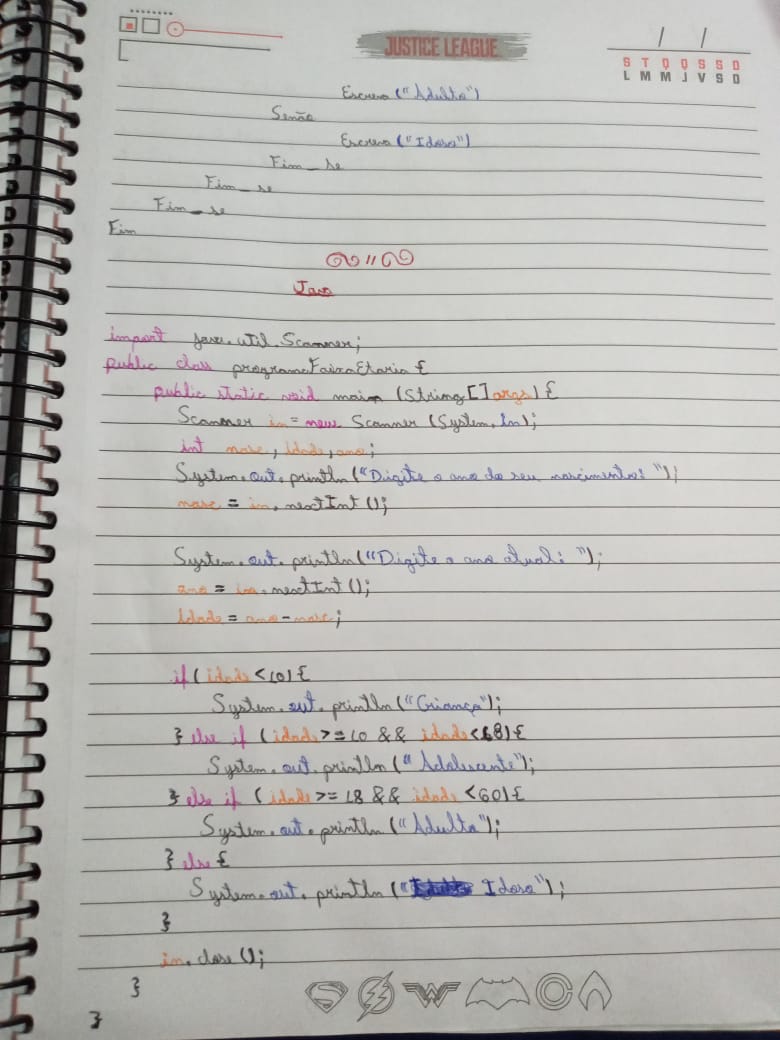 JUSTICE LEAGUE
S T Q Q S S D
L M M J V S D
Escreva ("Adulto")
Senão
Escreva ("Idoso")
Fim_se
Fim_se
Fim_se
Fim
Java
import java.util.Scanner;
public class programaFaixaEtaria {
public static void main (String[] args) {
Scanner in = new Scanner (System.In);
int nasc, idade, ano;
System.out.println ("Digite o ano do seu nascimento: ");
nasc = in.nextInt ();
System.out.println ("Digite o ano atual: ");
ano = in.nextInt ();
Idade = ano - nasc;
if ( idade < 10) {
System.out.println ("Criança");
} else if ( idade >= 10 && idade < 18) {
System.out.println ("Adolescente");
} else if ( idade >= 18 && idade < 60) {
System.out.println ("Adulto");
} else {
System.out.println (" Idoso");
}
in.close ();
}
}